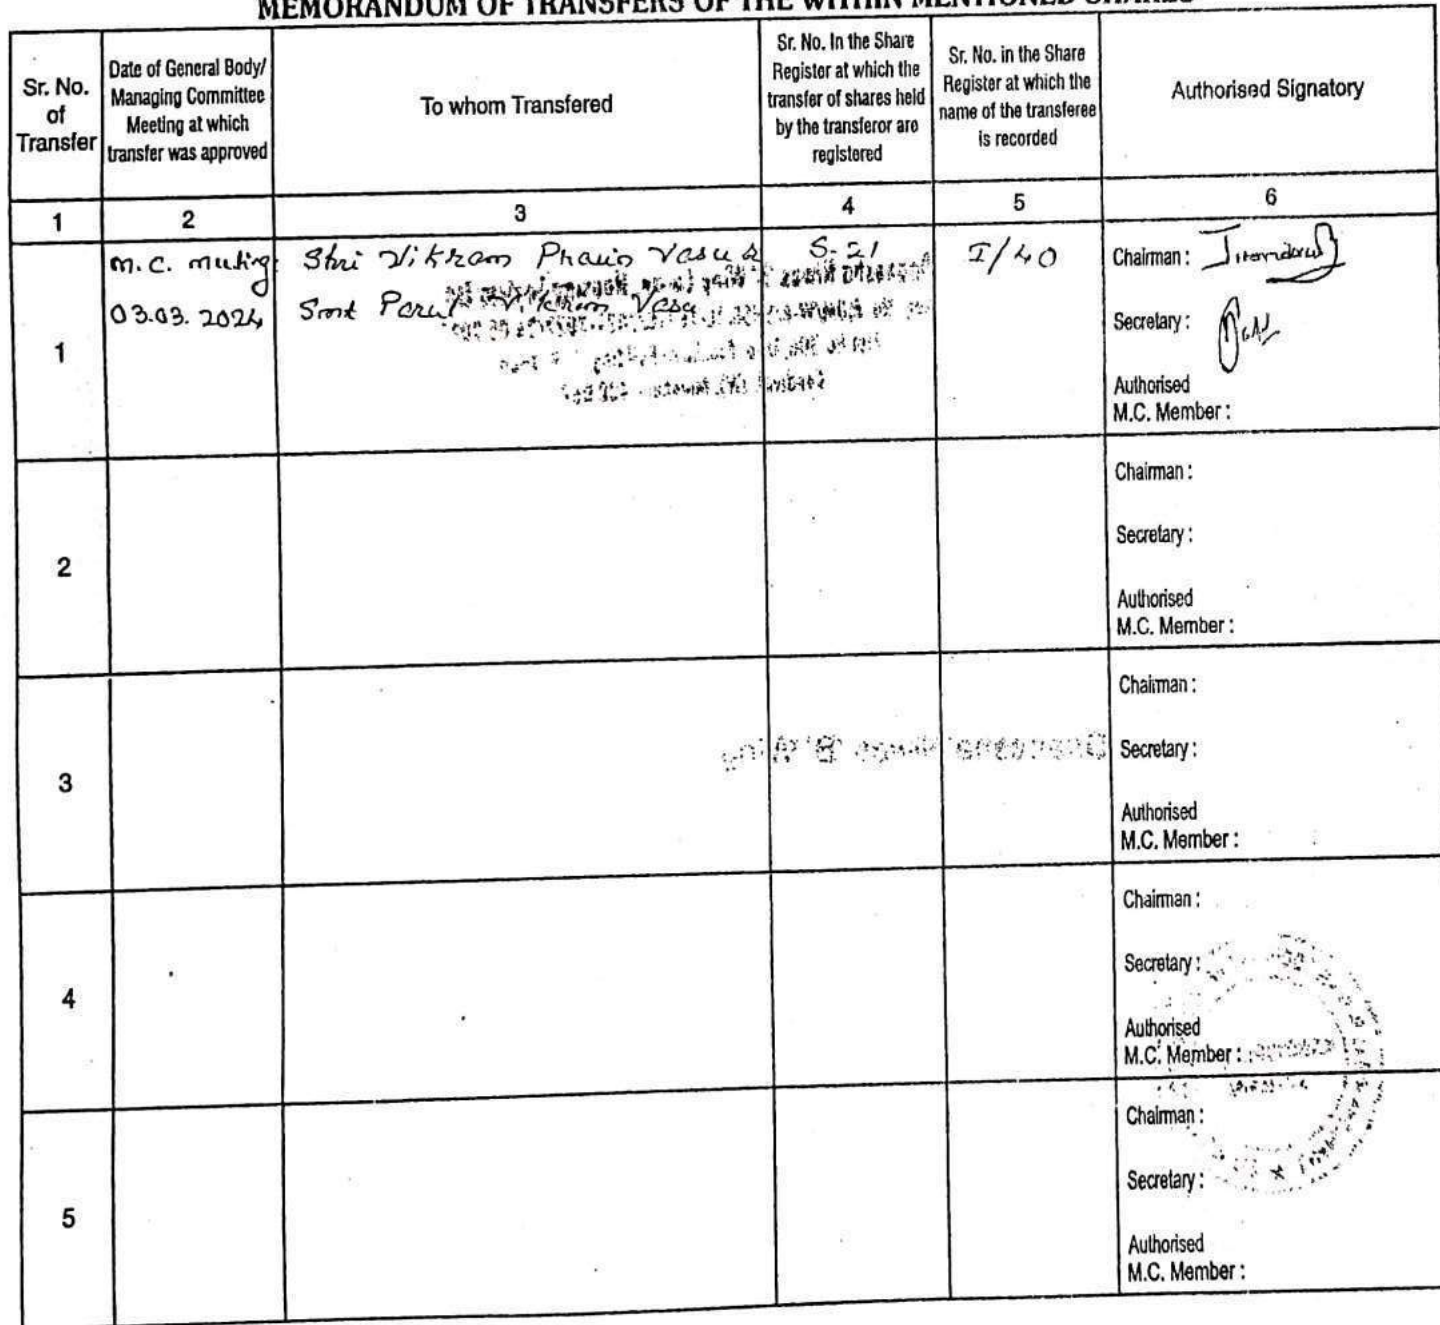 MEMORANDUM OF TRANSFERS OF THE WITHIN MENTIONED SHARES
Sr. No. of Transfer
Date of General Body/ Managing Committee Meeting at which transfer was approved
To whom Transfered
Sr. No. In the Share Register at which the transfer of shares held by the transferor are registered
Sr. No. in the Share Register at which the name of the transferee is recorded
Authorised Signatory
1 2 3 4 5 6
1
m.c. meeting
03.03.2024
Shri Vikram Pravin Vasu &
Smt Parul Vikram Vasu
S-21
I/40
Chairman :
Secretary :
Authorised
M.C. Member :
2
Chairman :
Secretary :
Authorised
M.C. Member :
3
Chairman :
Secretary :
Authorised
M.C. Member :
4
Chairman :
Secretary :
Authorised
M.C. Member :
5
Chairman :
Secretary :
Authorised
M.C. Member :